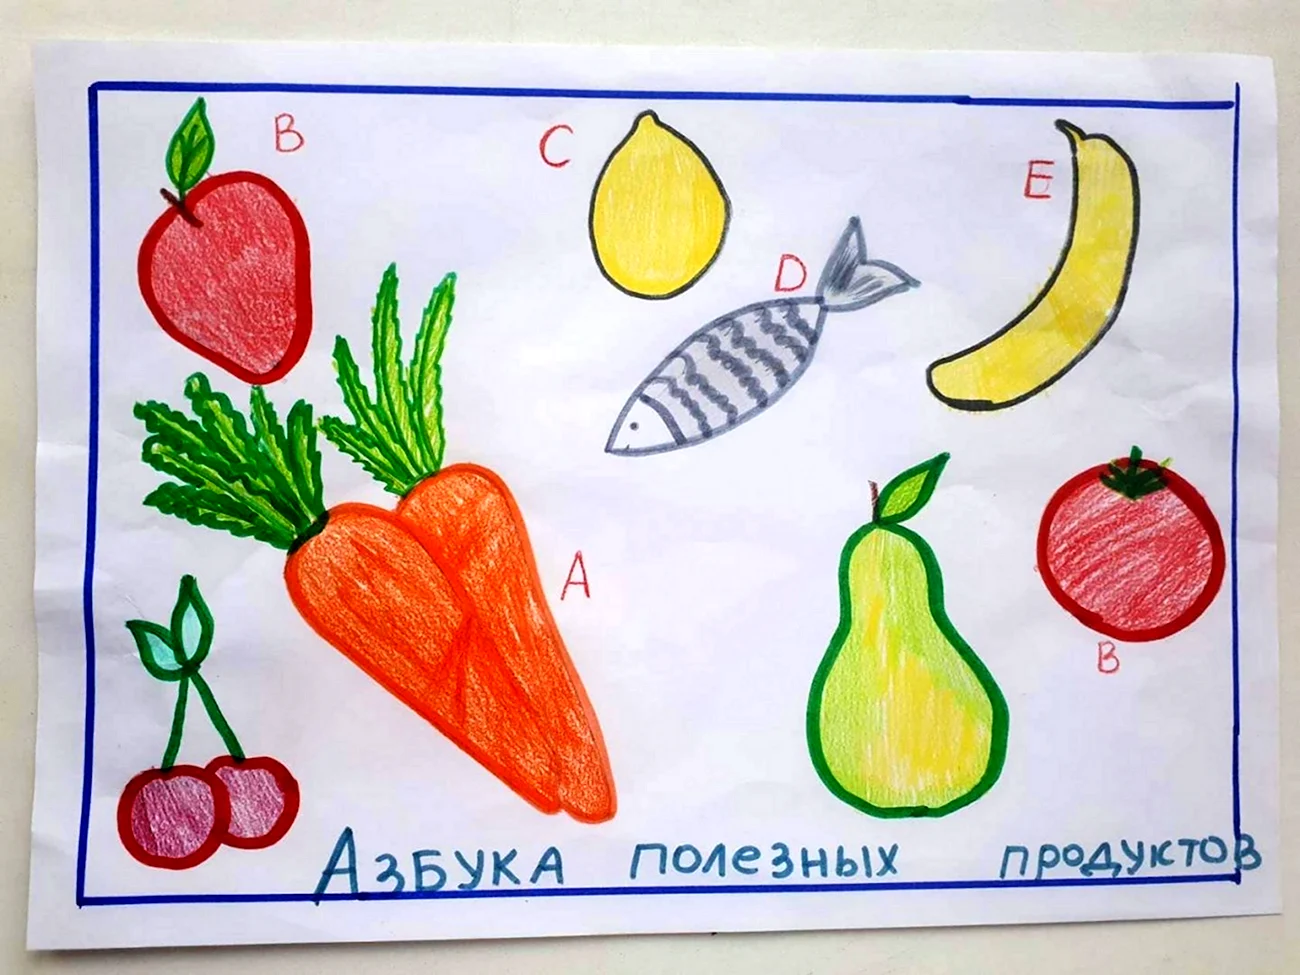 B
C
E
D
A
B
Азбука полезных продуктов